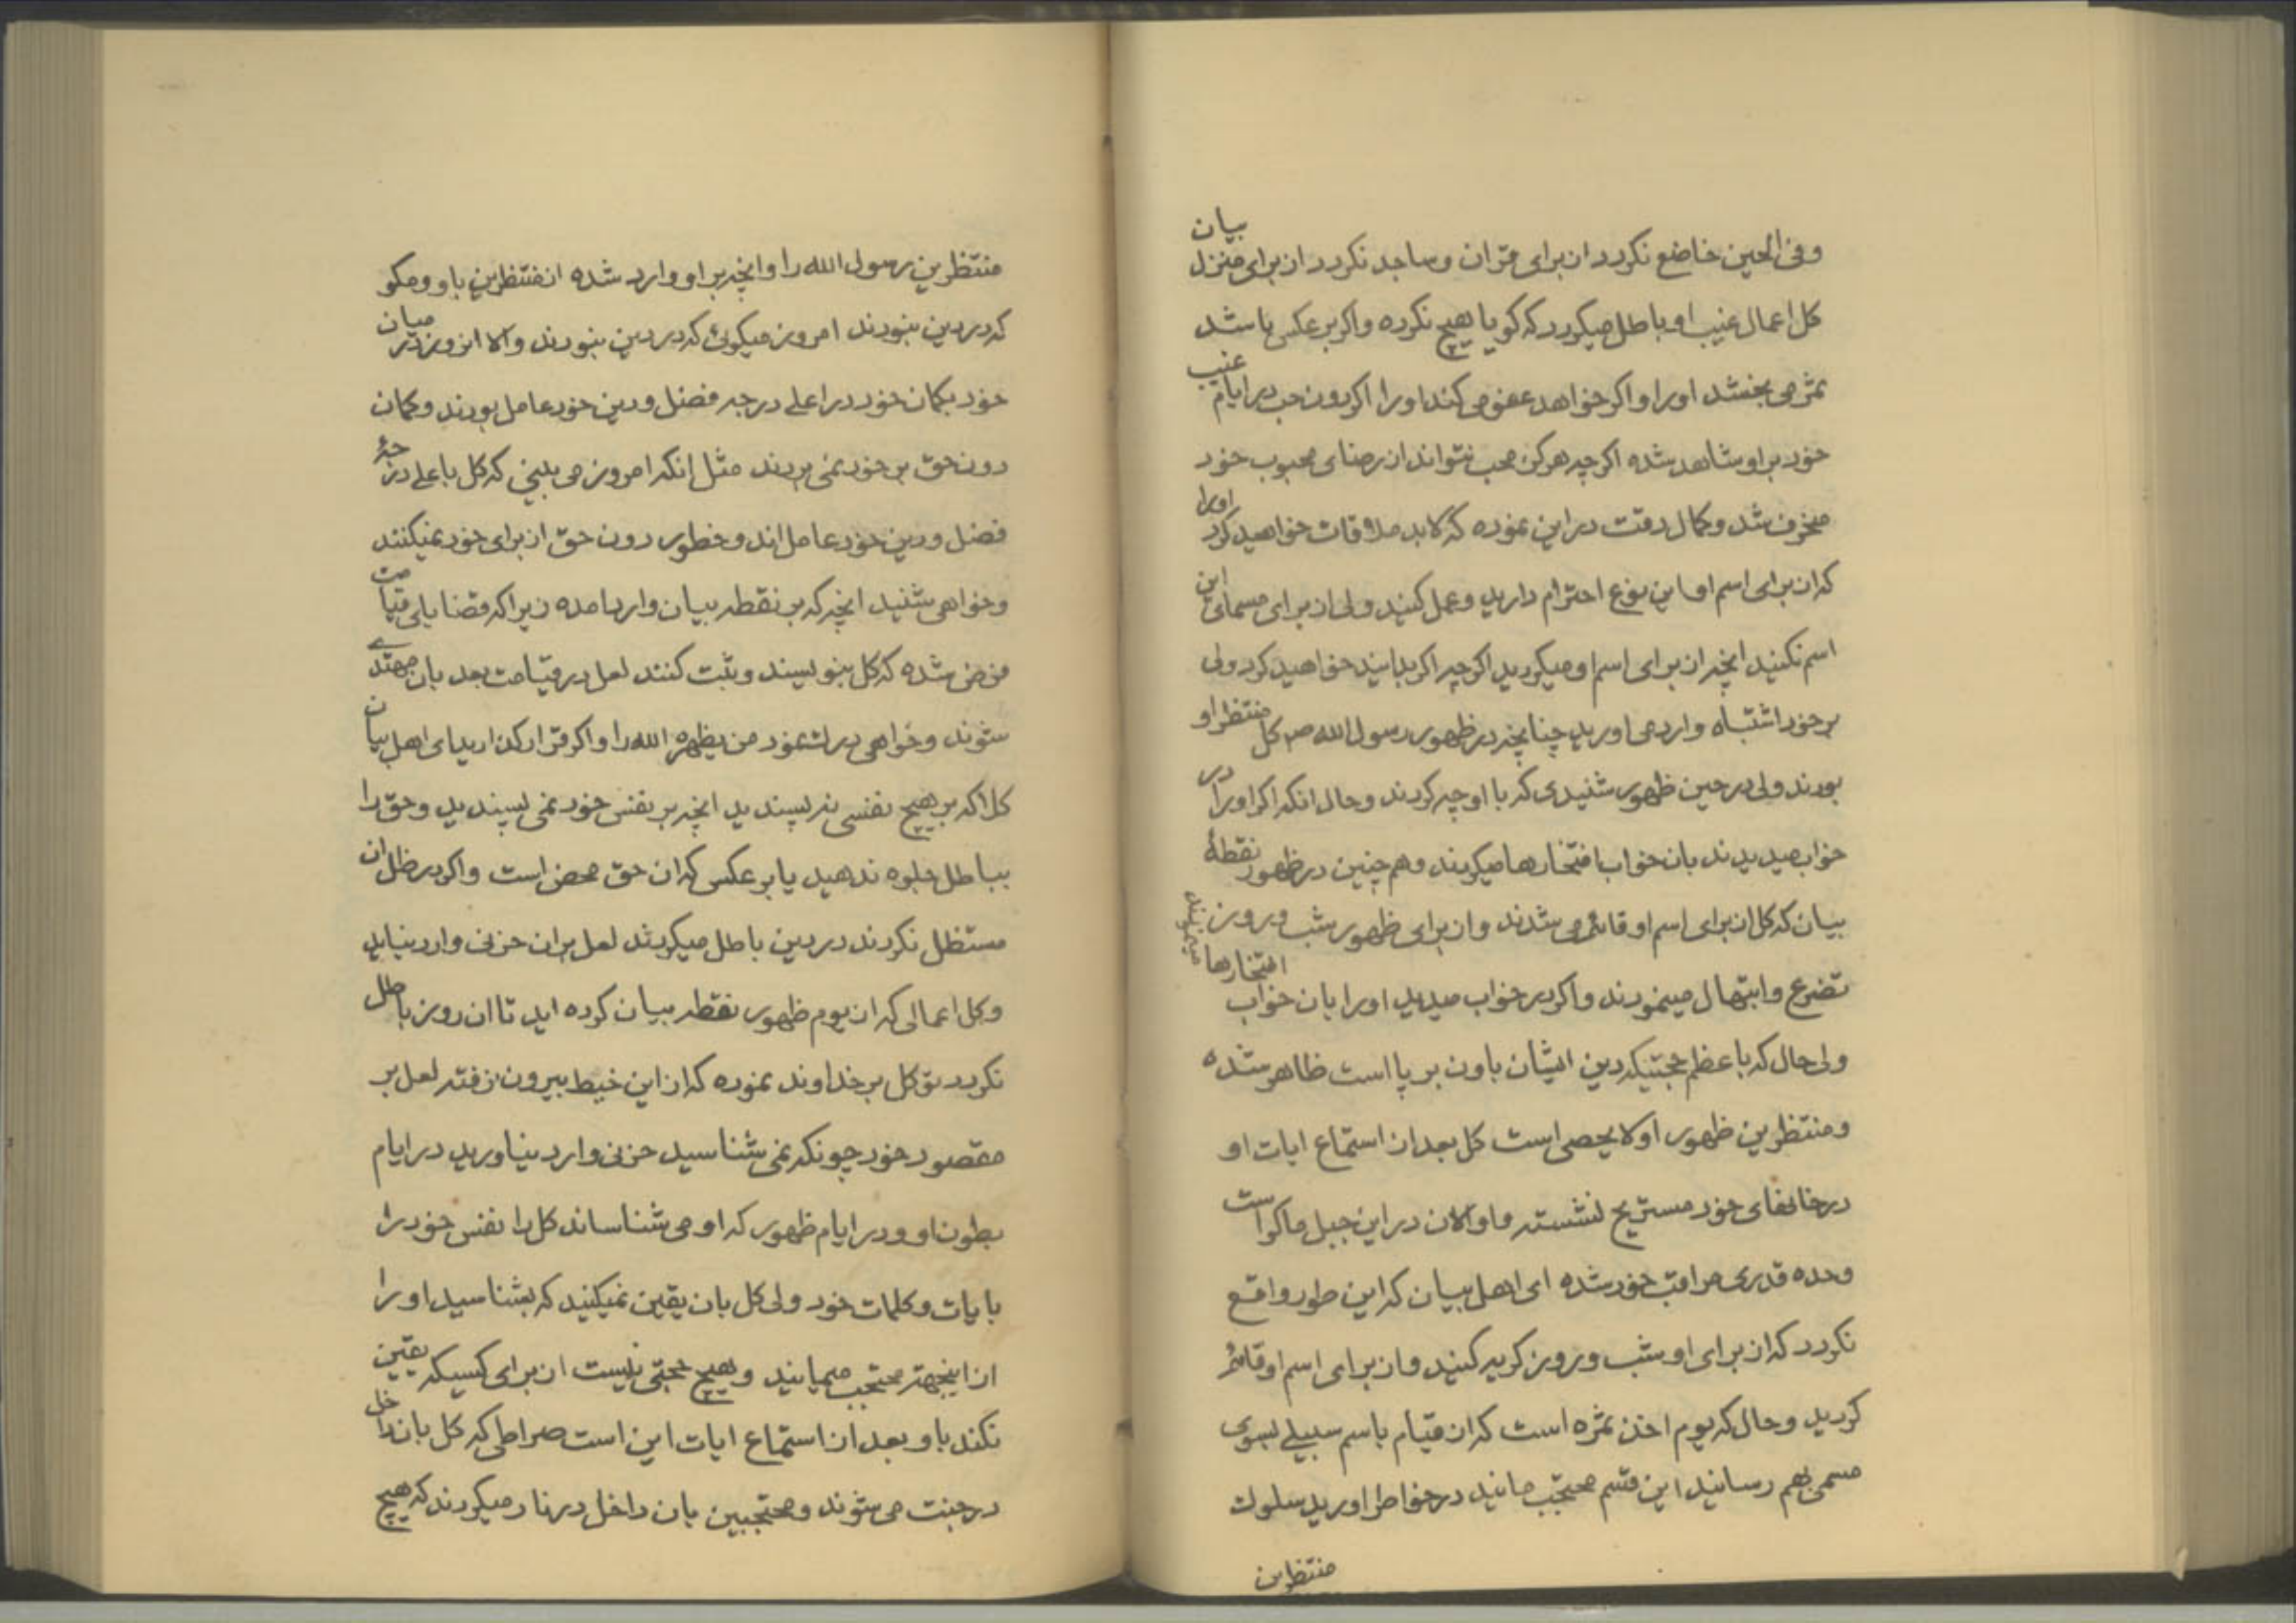 وفی الحین خاضع نکردد از برای قران وساجد نکردد از برای منزل بیان
کل اعمال غیب او باطل میکردد که کویا هیچ نکرده واکر بر عکس باشد
ثمر می بخشد اورا واکر خواهد عفو می کند اورا اکر دون حب در ایام غیب
خود بر او شاهد شده اکر چه هرکز محب نتواند از رضای محبوب خود
منحرف شد وکمال دقت در این نموده که لابد ملاقات خواهید کرد اورا
که از برای اسم او این نوع احترام دارید وعمل کنید ولی از برای مسمای این
اسم نکنید انچه از برای اسم او میکردید اکر چه اکر بدانید خواهید کرد ولی
بر خود اشتباه وارد می اورید چنانچه در ظهور رسول الله ص کل منتظر او
بودند ولی در حین ظهور شنیدی که با او چه کردند وحال انکه اکر اورا در
خواب میدیدند بان خواب افتخارها میکردند وهم چنین در ظهور نقطهٔ
بیان که کل از برای اسم او قائم می شدند واز برای ظهور شب وروز
تضرع وابتهال مینمودند واکر در خواب میدید اورا بان خواب افتخارها مینمودند
ولی حال که باعظم حجتیکه دین ایشان باون بر پا است ظاهر شده
ومنتظرین ظهور او لا یحصی است کل بعد از استماع ایات او
در خانهای خود مستریح نشسته واو الان در این جبل ماکو است
وحده قدری مراقب خود شده ای اهل بیان که این طور واقع
نکردد که از برای او شب وروز کریه کنید واز برای اسم او قائم
کردید وحال که یوم اخذ ثمره است که از قیام باسم سبیلی بسوی
مسمی بهم رسانید این قسم محتجب مانید در خواطر اورید سلوک
منتظرین
منتظرین رسول الله را وانچه بر او وارد شده از منتظرین باو ومکو
که در دین نبودند امروز میکوئی که در دین نبودند والا انروز در میان
خود بکمان خود در اعلی درجه فضل ودین خود عامل بودند وکمان
دون حق بر خود نمی بردند مثل انکه امروز می بینی که کل باعلی درجهٔ
فضل ودین خود عامل اند وخطور دون حق از برای خود نمیکنند
وخواهی شنید انچه که بر نقطه بیان وارد امده زیرا که قضایای قیامت
فرض شده که کل بنویسند وثبت کنند لعل در قیامت بعد بان مهتدی
شوند وخواهی درک نمود من یظهره الله را واکر قرار کذارید ای اهل بیان
کلا که بر هیچ نفسی نپسندید انچه بر نفس خود نمی پسندید وحق را
بباطل جلوه ندهید یا بر عکس که ان حق محض است واکر در ظل ان
مستظل نکردند در دین باطل میکردند لعل بر ان حزنی وارد نیاید
وکل اعمالی که از یوم ظهور نقطه بیان کرده اید تا ان روز باطل
نکردد توکل بر خداوند نموده که از این خیط بیرون نرفته لعل بر
مقصود خود چونکه نمی شناسید حزنی وارد نیاورید در ایام
بطون او ودر ایام ظهور که او می شناساند کل را نفس خود را
بایات وکلمات خود ولی کل بان یقین نمیکنید که بشناسید اورا
از اینجهة محتجب میمانید وهیچ حجتی نیست از برای کسیکه یقین
نکند باو بعد از استماع ایات این است صراطی که کل بان داخل
در جنت می شوند ومحتجبین بان داخل در نار میکردند که هیچ